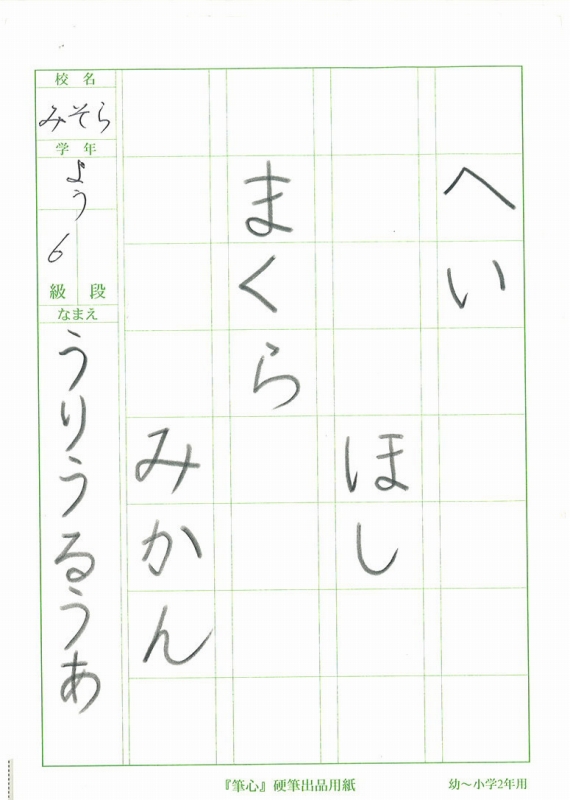 へい
ほし
まくら
みかん
校名
みそら
学年
よう
6
級 段
なまえ
うりうるうあ
『筆心』硬筆出品用紙
幼〜小学2年用